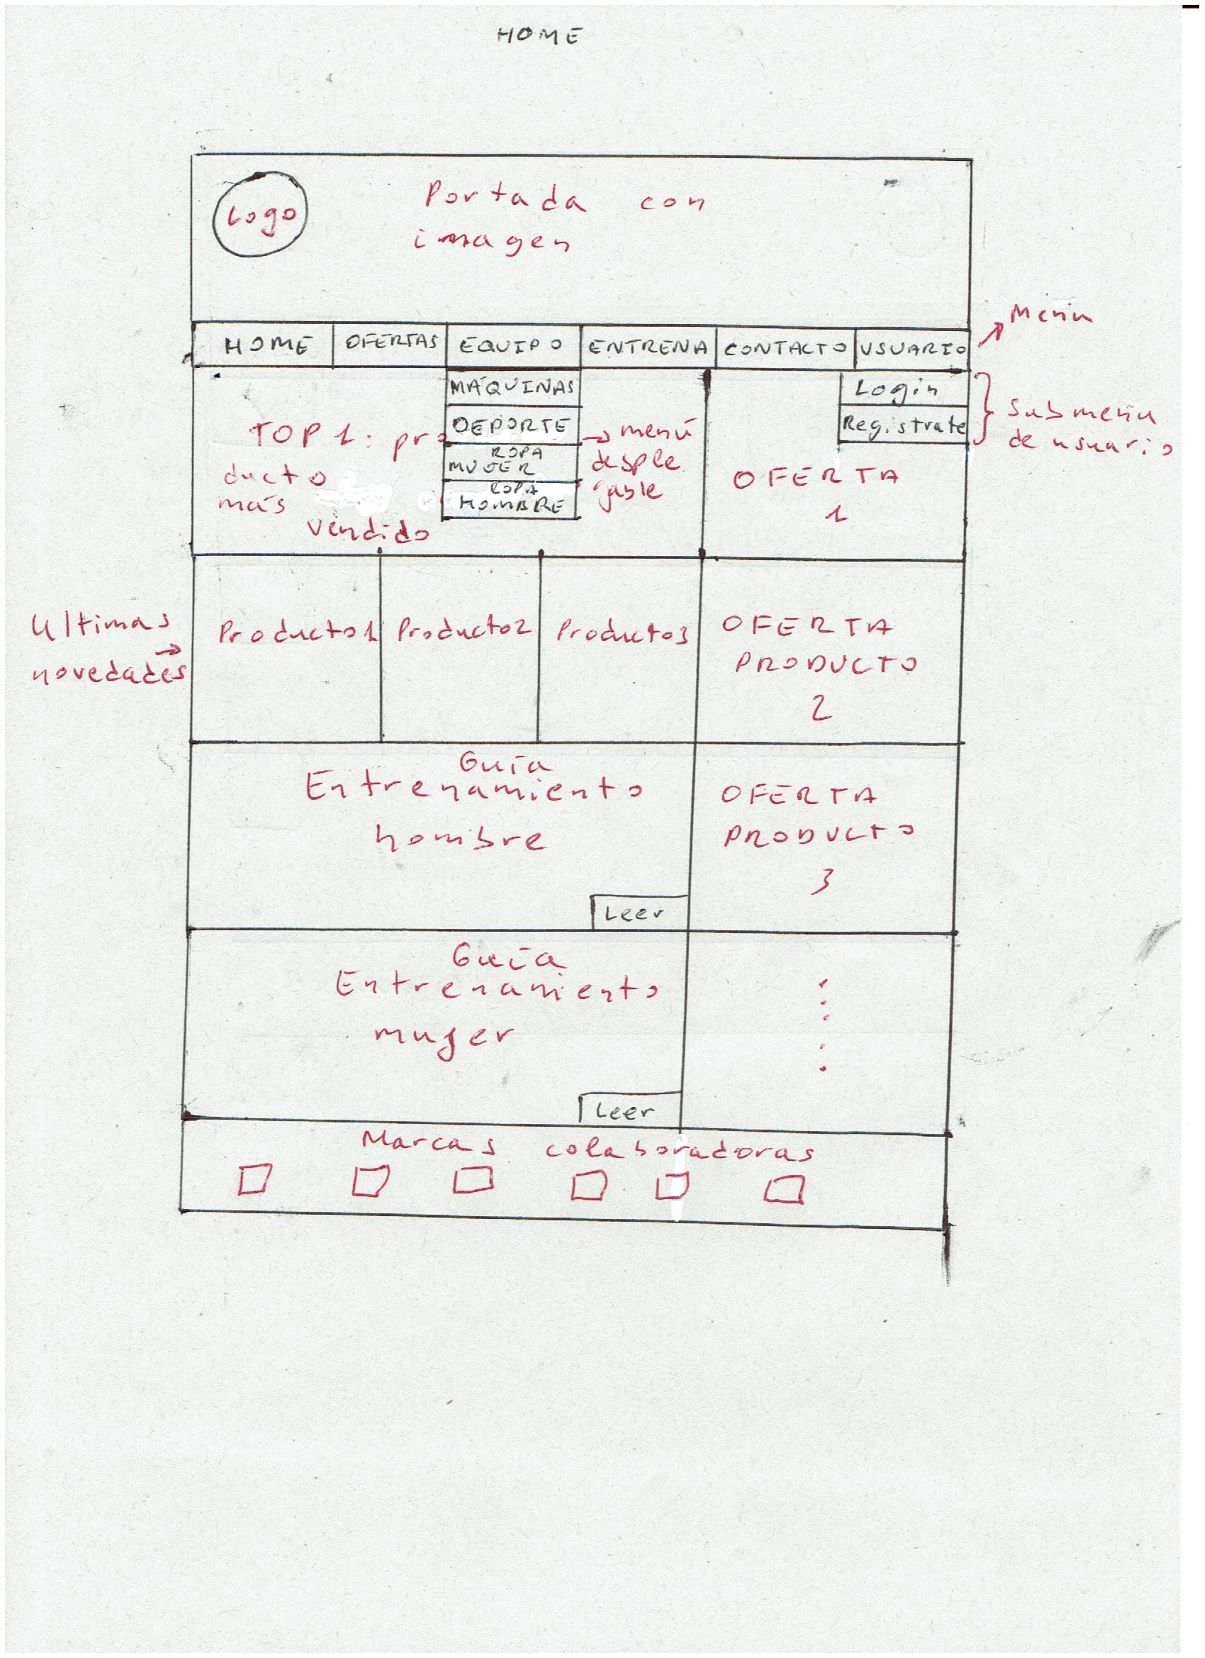 HOME
Logo
Portada con
imagen
HOME OFERTAS EQUIPO ENTRENA CONTACTO USUARIO
Menu
MÁQUINAS
DEPORTE
ROPA
MUJER
ROPA
HOMBRE
Login
Registrate
Submenu
de usuario
TOP 1: pro
ducto
más
vendido
menú
desple
gable
OFERTA
1
Ultimas
novedades
Producto1 Producto2 Producto3
OFERTA
PRODUCTO
2
Guía
Entrenamiento
hombre
Leer
OFERTA
PRODUCTO
3
Guía
Entrenamiento
mujer
Leer
Marcas colaboradoras